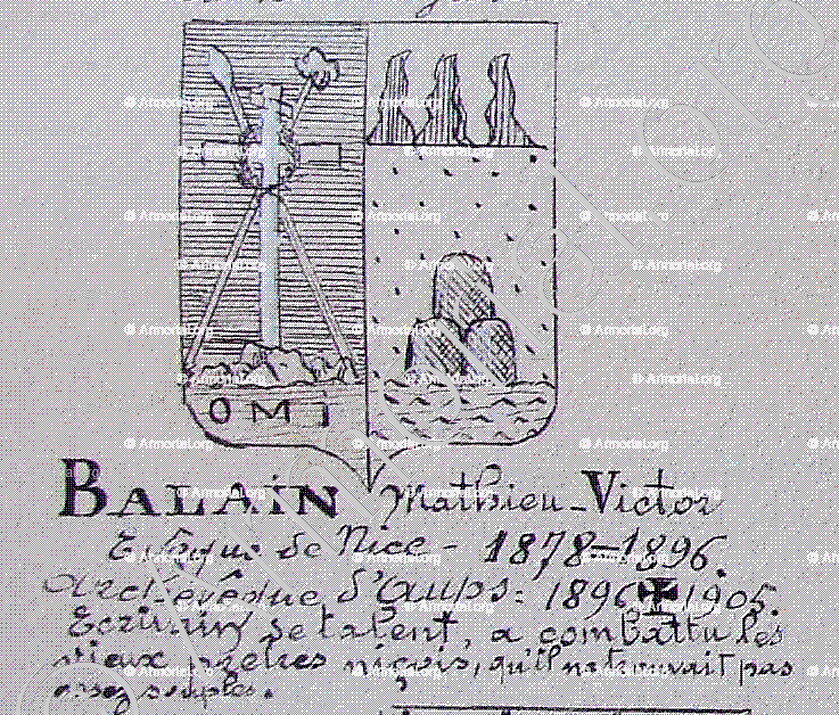 OMI
BALAIN Mathieu-Victor
Evêque de Nice - 1878=1896.
Archevêque d'Aups: 1896 ✠ 1905.
Ecrivain de talent, a combattu les
vieux prêtres niçois, qu'il ne trouvait pas
assez souples.
Armorial.org